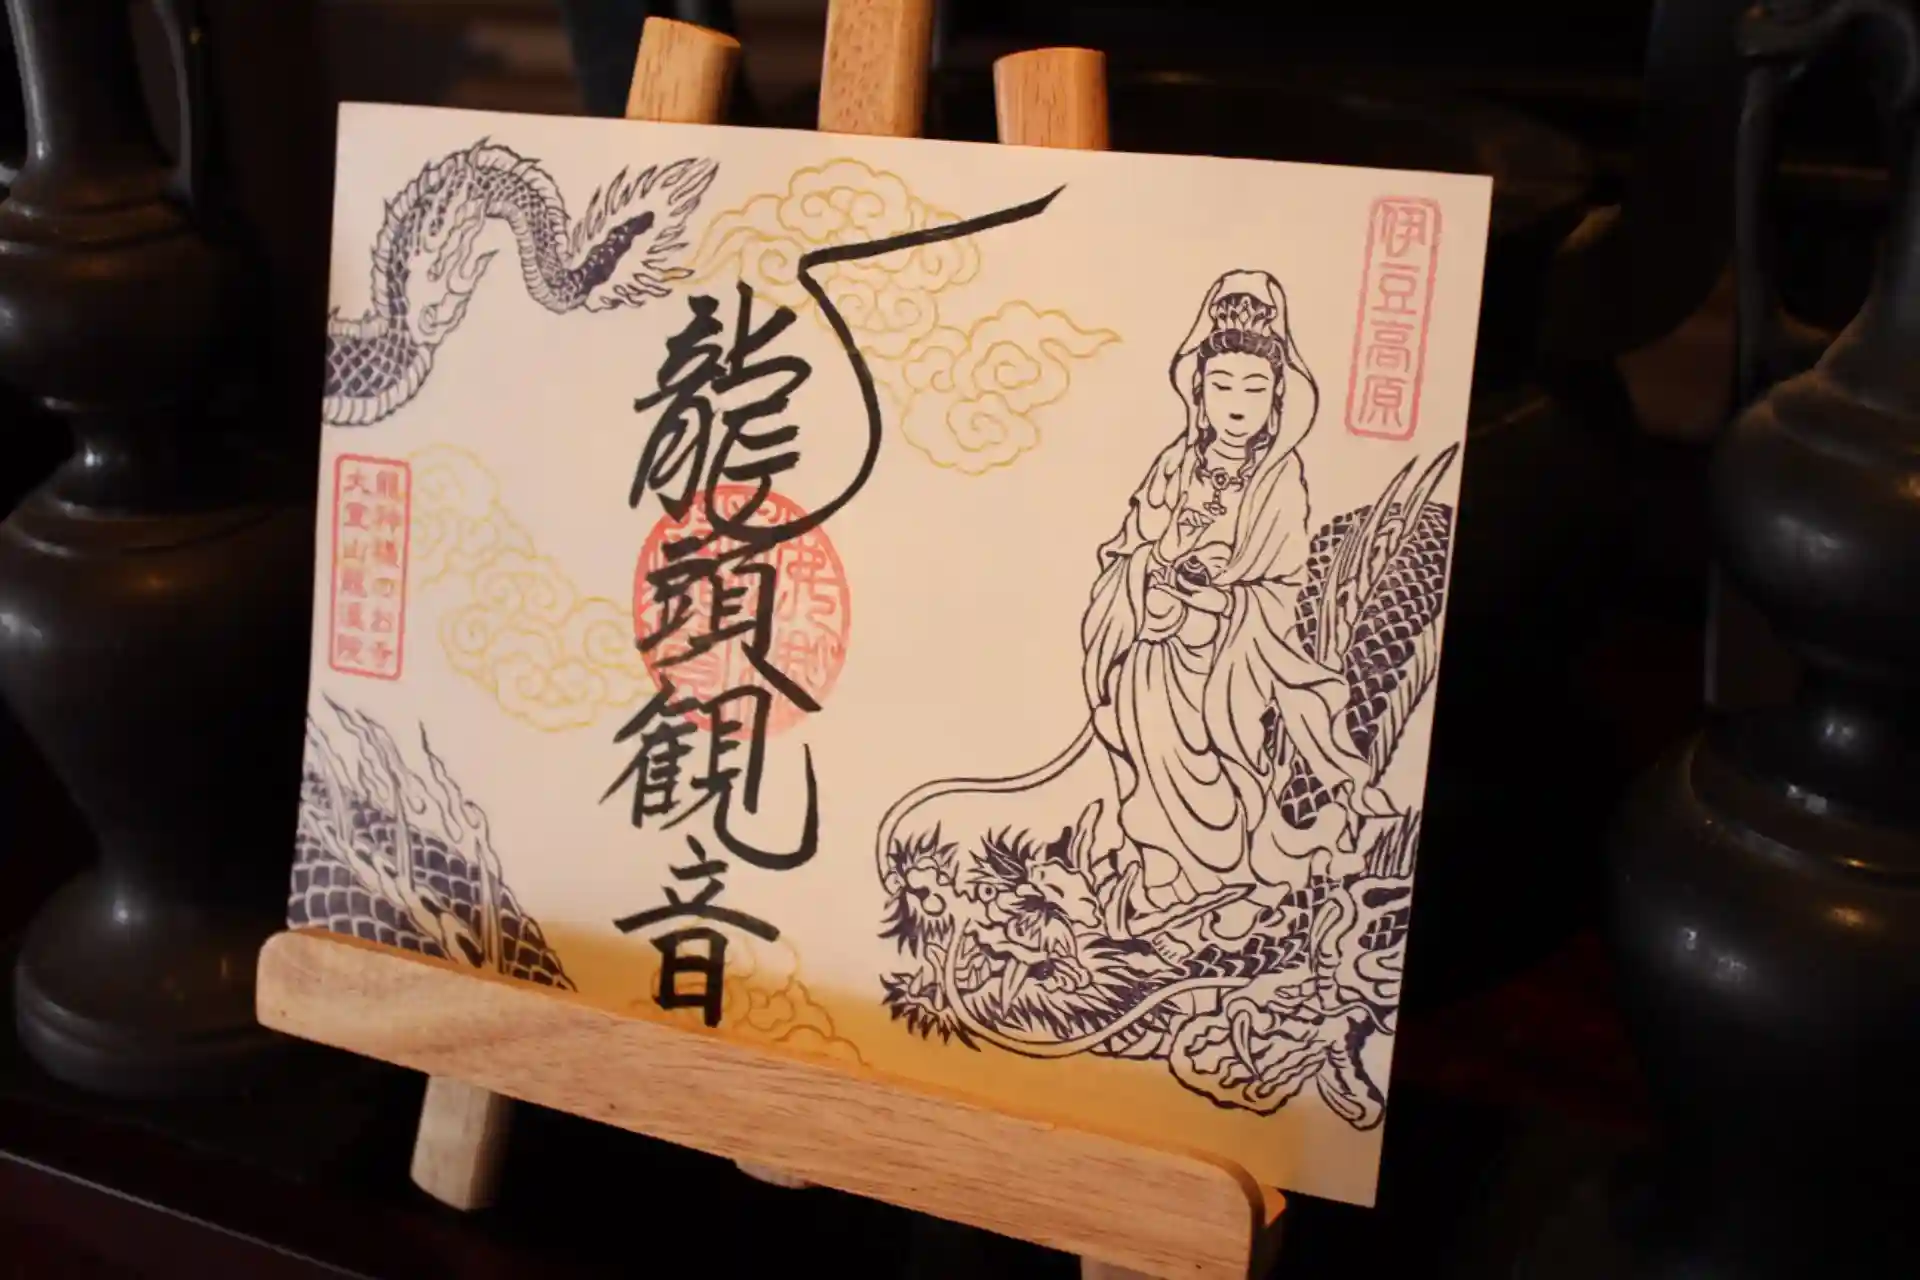 伊豆高原
龍頭観音
龍神様のお寺
大室山龍渓院